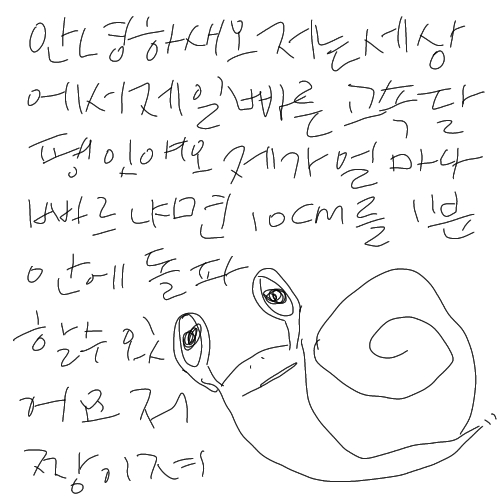 안녕하새오 저는 세상
에서 제일 빠른 고속 달
팽이얘오 제가 얼마나
빠르냐면 10cm를 1분
안에 돌파
할수 있
어요 저
짱이죠